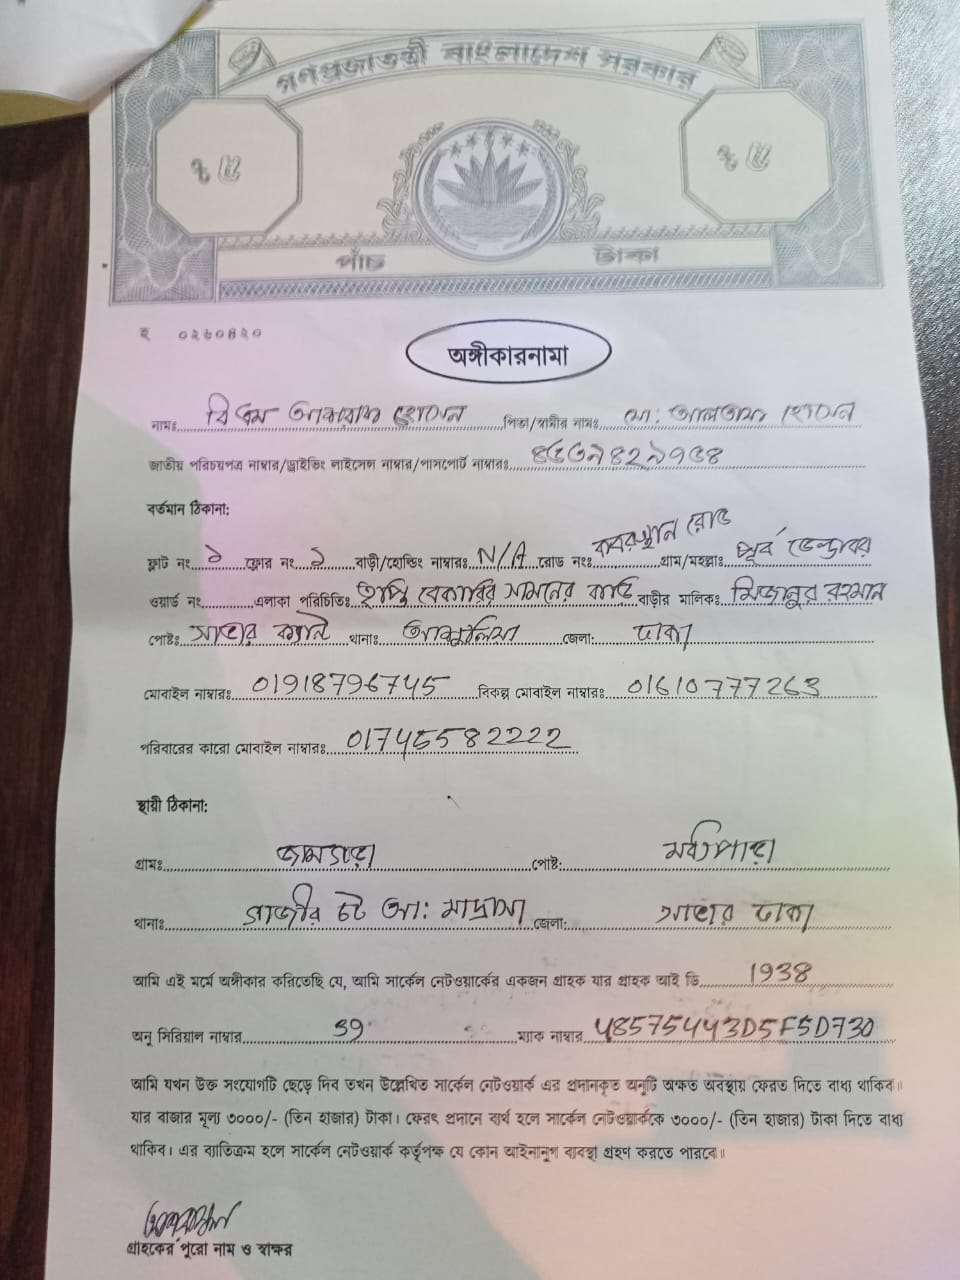 গণপ্রজাতন্ত্রী বাংলাদেশ সরকার
৳ ৫ ৳ ৫
পাঁচ টাকা
হ ০২৬০৪২০
অঙ্গীকারনামা
নামঃ আকরাম হোসেন পিতা/স্বামীর নামঃ মো: আলতাফ হোসেন
জাতীয় পরিচয়পত্র নাম্বার/ড্রাইভিং লাইসেন্স নাম্বার/পাসপোর্ট নাম্বারঃ
বর্তমান ঠিকানা:
ফ্লাট নং ১ ফ্লোর নং ১ বাড়ী/হোল্ডিং নাম্বারঃ N/A রোড নংঃ কবরস্থান রোড গ্রাম/মহল্লাঃ পূর্ব ডেন্ডাবর
ওয়ার্ড নং এলাকা পরিচিতিঃ তৃপ্তি বেকারির সামনের বাড়ি বাড়ীর মালিকঃ মিজানুর রহমান
পোষ্টঃ সাভার ক্যান্ট থানাঃ আশুলিয়া জেলা: ঢাকা
মোবাইল নাম্বারঃ 01918796745 বিকল্প মোবাইল নাম্বারঃ 01610777263
পরিবারের কারো মোবাইল নাম্বারঃ
স্থায়ী ঠিকানা:
গ্রামঃ পোষ্ট:
থানাঃ জেলা: সাভার ঢাকা
আমি এই মর্মে অঙ্গীকার করিতেছি যে, আমি সার্কেল নেটওয়ার্কের একজন গ্রাহক যার গ্রাহক আই ডি 1938
অনু সিরিয়াল নাম্বার 39 ম্যাক নাম্বার 48575443D5F5D730
আমি যখন উক্ত সংযোগটি ছেড়ে দিব তখন উল্লেখিত সার্কেল নেটওয়ার্ক এর প্রদানকৃত অনুটি অক্ষত অবস্থায় ফেরত দিতে বাধ্য থাকিব।
যার বাজার মূল্য ৩০০০/- (তিন হাজার) টাকা। ফেরৎ প্রদানে ব্যর্থ হলে সার্কেল নেটওয়ার্ককে ৩০০০/- (তিন হাজার) টাকা দিতে বাধ্য
থাকিব। এর ব্যতিক্রম হলে সার্কেল নেটওয়ার্ক কর্তৃপক্ষ যে কোন আইনানুগ ব্যবস্থা গ্রহণ করতে পারবে।
গ্রাহকের পুরো নাম ও স্বাক্ষর